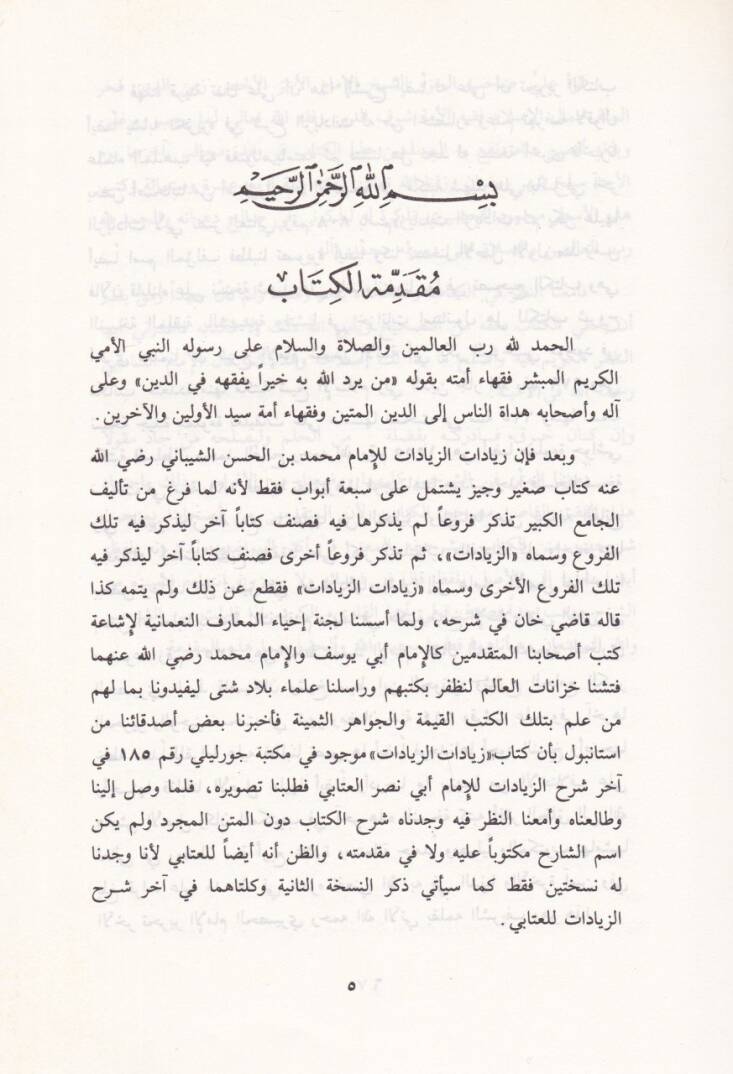 بسم الله الرحمن الرحيم
مُقَدِّمَة الكِتَاب
الحمد لله رب العالمين والصلاة والسلام على رسوله النبي الأمي
الكريم المبشر فقهاء أمته بقوله «من يرد الله به خيراً يفقهه في الدين» وعلى
آله وأصحابه هداة الناس إلى الدين المتين وفقهاء أمة سيد الأولين والآخرين.
وبعد فإن زيادات الزيادات للإمام محمد بن الحسن الشيباني رضي الله
عنه كتاب صغير وجيز يشتمل على سبعة أبواب فقط لأنه لما فرغ من تأليف
الجامع الكبير تذكر فروعاً لم يذكرها فيه فصنف كتاباً آخر ليذكر فيه تلك
الفروع وسماه «الزيادات»، ثم تذكر فروعاً أخرى فصنف كتاباً آخر ليذكر فيه
تلك الفروع الأخرى وسماه «زيادات الزيادات» فقطع عن ذلك ولم يتمه كذا
قاله قاضي خان في شرحه، ولما أسسنا لجنة إحياء المعارف النعمانية لإشاعة
كتب أصحابنا المتقدمين كالإمام أبي يوسف والإمام محمد رضي الله عنهما
فتشنا خزانات العالم لنظفر بكتبهم وراسلنا علماء بلاد شتى ليفيدونا بما لهم
من علم بتلك الكتب القيمة والجواهر الثمينة فأخبرنا بعض أصدقائنا من
استانبول بأن كتاب«زيادات الزيادات»موجود في مكتبة جورليلي رقم ١٨٥ في
آخر شرح الزيادات للإمام أبي نصر العتابي فطلبنا تصويره، فلما وصل إلينا
وطالعناه وأمعنا النظر فيه وجدناه شرح الكتاب دون المتن المجرد ولم يكن
اسم الشارح مكتوباً عليه ولا في مقدمته، والظن أنه أيضاً للعتابي لأنا وجدنا
له نسختين فقط كما سيأتي ذكر النسخة الثانية وكلتاهما في آخر شرح
الزيادات للعتابي.
٥